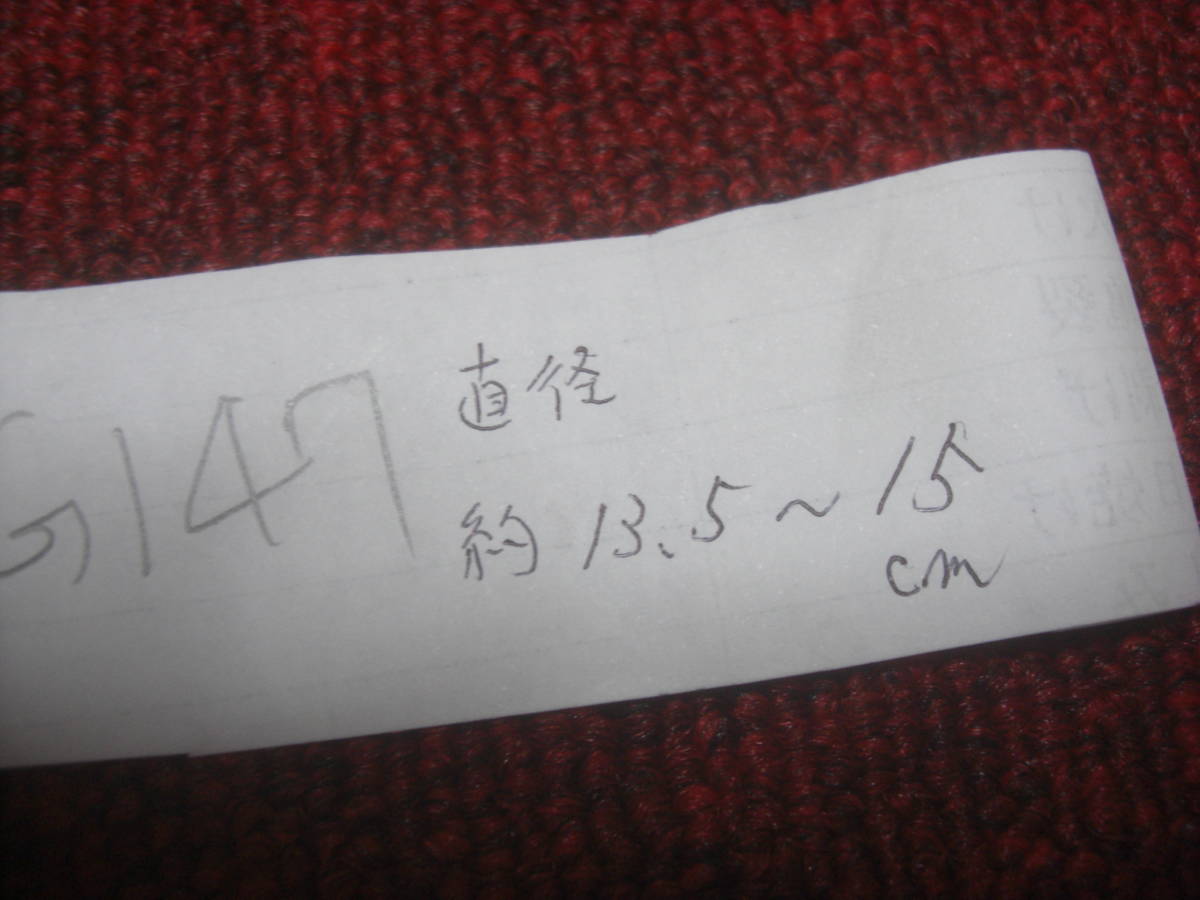 G147
直径
約 13.5~15
cm